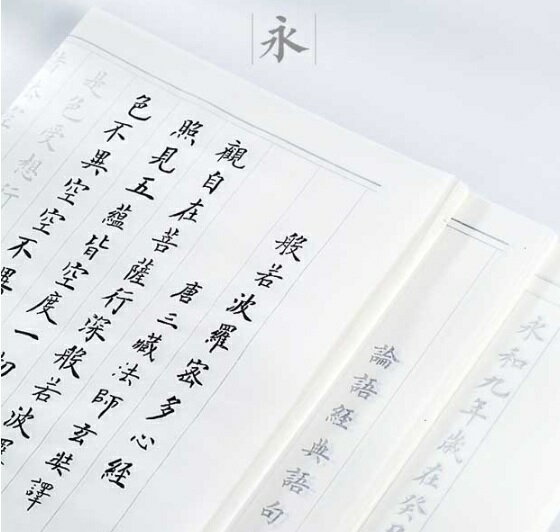 永
般若波羅密多心經
唐三藏法師玄奘譯
觀自在菩薩行深般若波羅
照見五蘊皆空度一切
色不異空空不異
是色受想行
論語經典語句
永和九年歲在癸